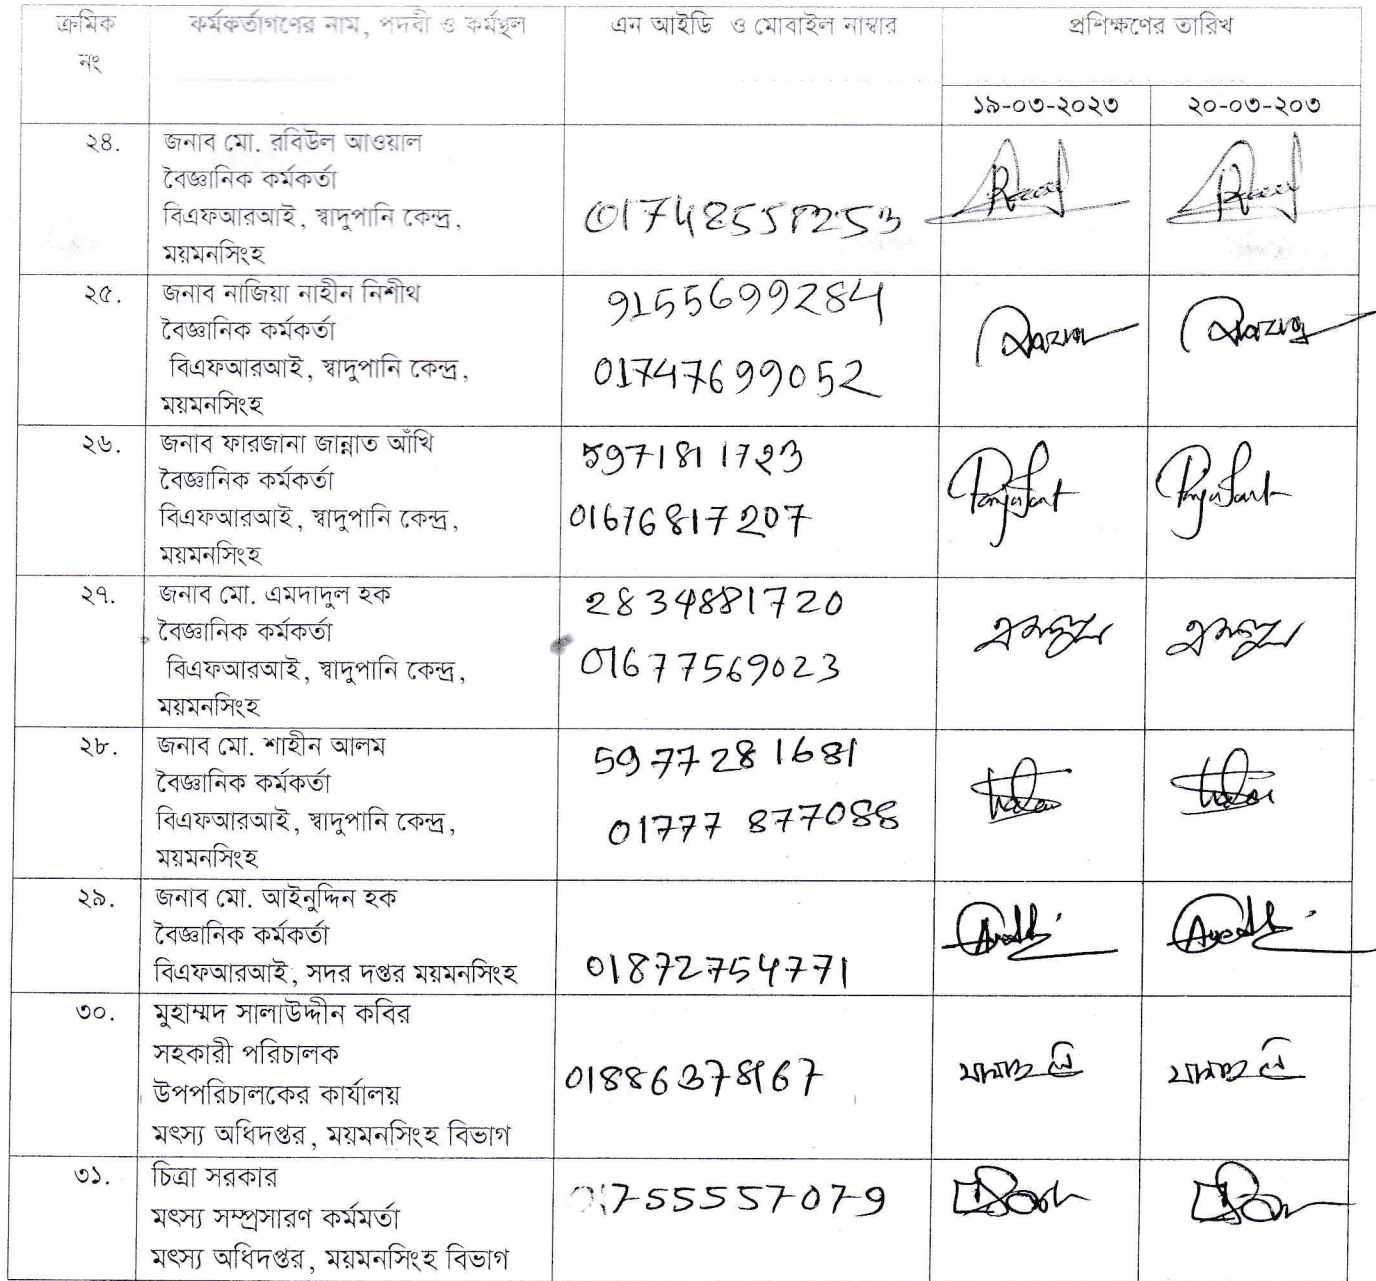 ক্রমিক নং
কর্মকর্তাগণের নাম, পদবী ও কর্মস্থল
এন আইডি ও মোবাইল নাম্বার
প্রশিক্ষণের তারিখ
১৯-০৩-২০২৩
২০-০৩-২০৩
২৪.
জনাব মো. রবিউল আওয়াল
বৈজ্ঞানিক কর্মকর্তা
বিএফআরআই, স্বাদুপানি কেন্দ্র,
ময়মনসিংহ
২৫.
জনাব নাজিয়া নাহীন নিশীথ
বৈজ্ঞানিক কর্মকর্তা
বিএফআরআই, স্বাদুপানি কেন্দ্র,
ময়মনসিংহ
9155699284
01747699052
২৬.
জনাব ফারজানা জান্নাত আঁখি
বৈজ্ঞানিক কর্মকর্তা
বিএফআরআই, স্বাদুপানি কেন্দ্র,
ময়মনসিংহ
5971811723
01676817207
২৭.
জনাব মো. এমদাদুল হক
বৈজ্ঞানিক কর্মকর্তা
বিএফআরআই, স্বাদুপানি কেন্দ্র,
ময়মনসিংহ
2834881720
01677569023
২৮.
জনাব মো. শাহীন আলম
বৈজ্ঞানিক কর্মকর্তা
বিএফআরআই, স্বাদুপানি কেন্দ্র,
ময়মনসিংহ
5977281681
01777 877088
২৯.
জনাব মো. আইনুদ্দিন হক
বৈজ্ঞানিক কর্মকর্তা
বিএফআরআই, সদর দপ্তর ময়মনসিংহ
01872754771
৩০.
মুহাম্মদ সালাউদ্দীন কবির
সহকারী পরিচালক
উপপরিচালকের কার্যালয়
মৎস্য অধিদপ্তর, ময়মনসিংহ বিভাগ
01886378967
৩১.
চিত্রা সরকার
মৎস্য সম্প্রসারণ কর্মমর্তা
মৎস্য অধিদপ্তর, ময়মনসিংহ বিভাগ
01755557079